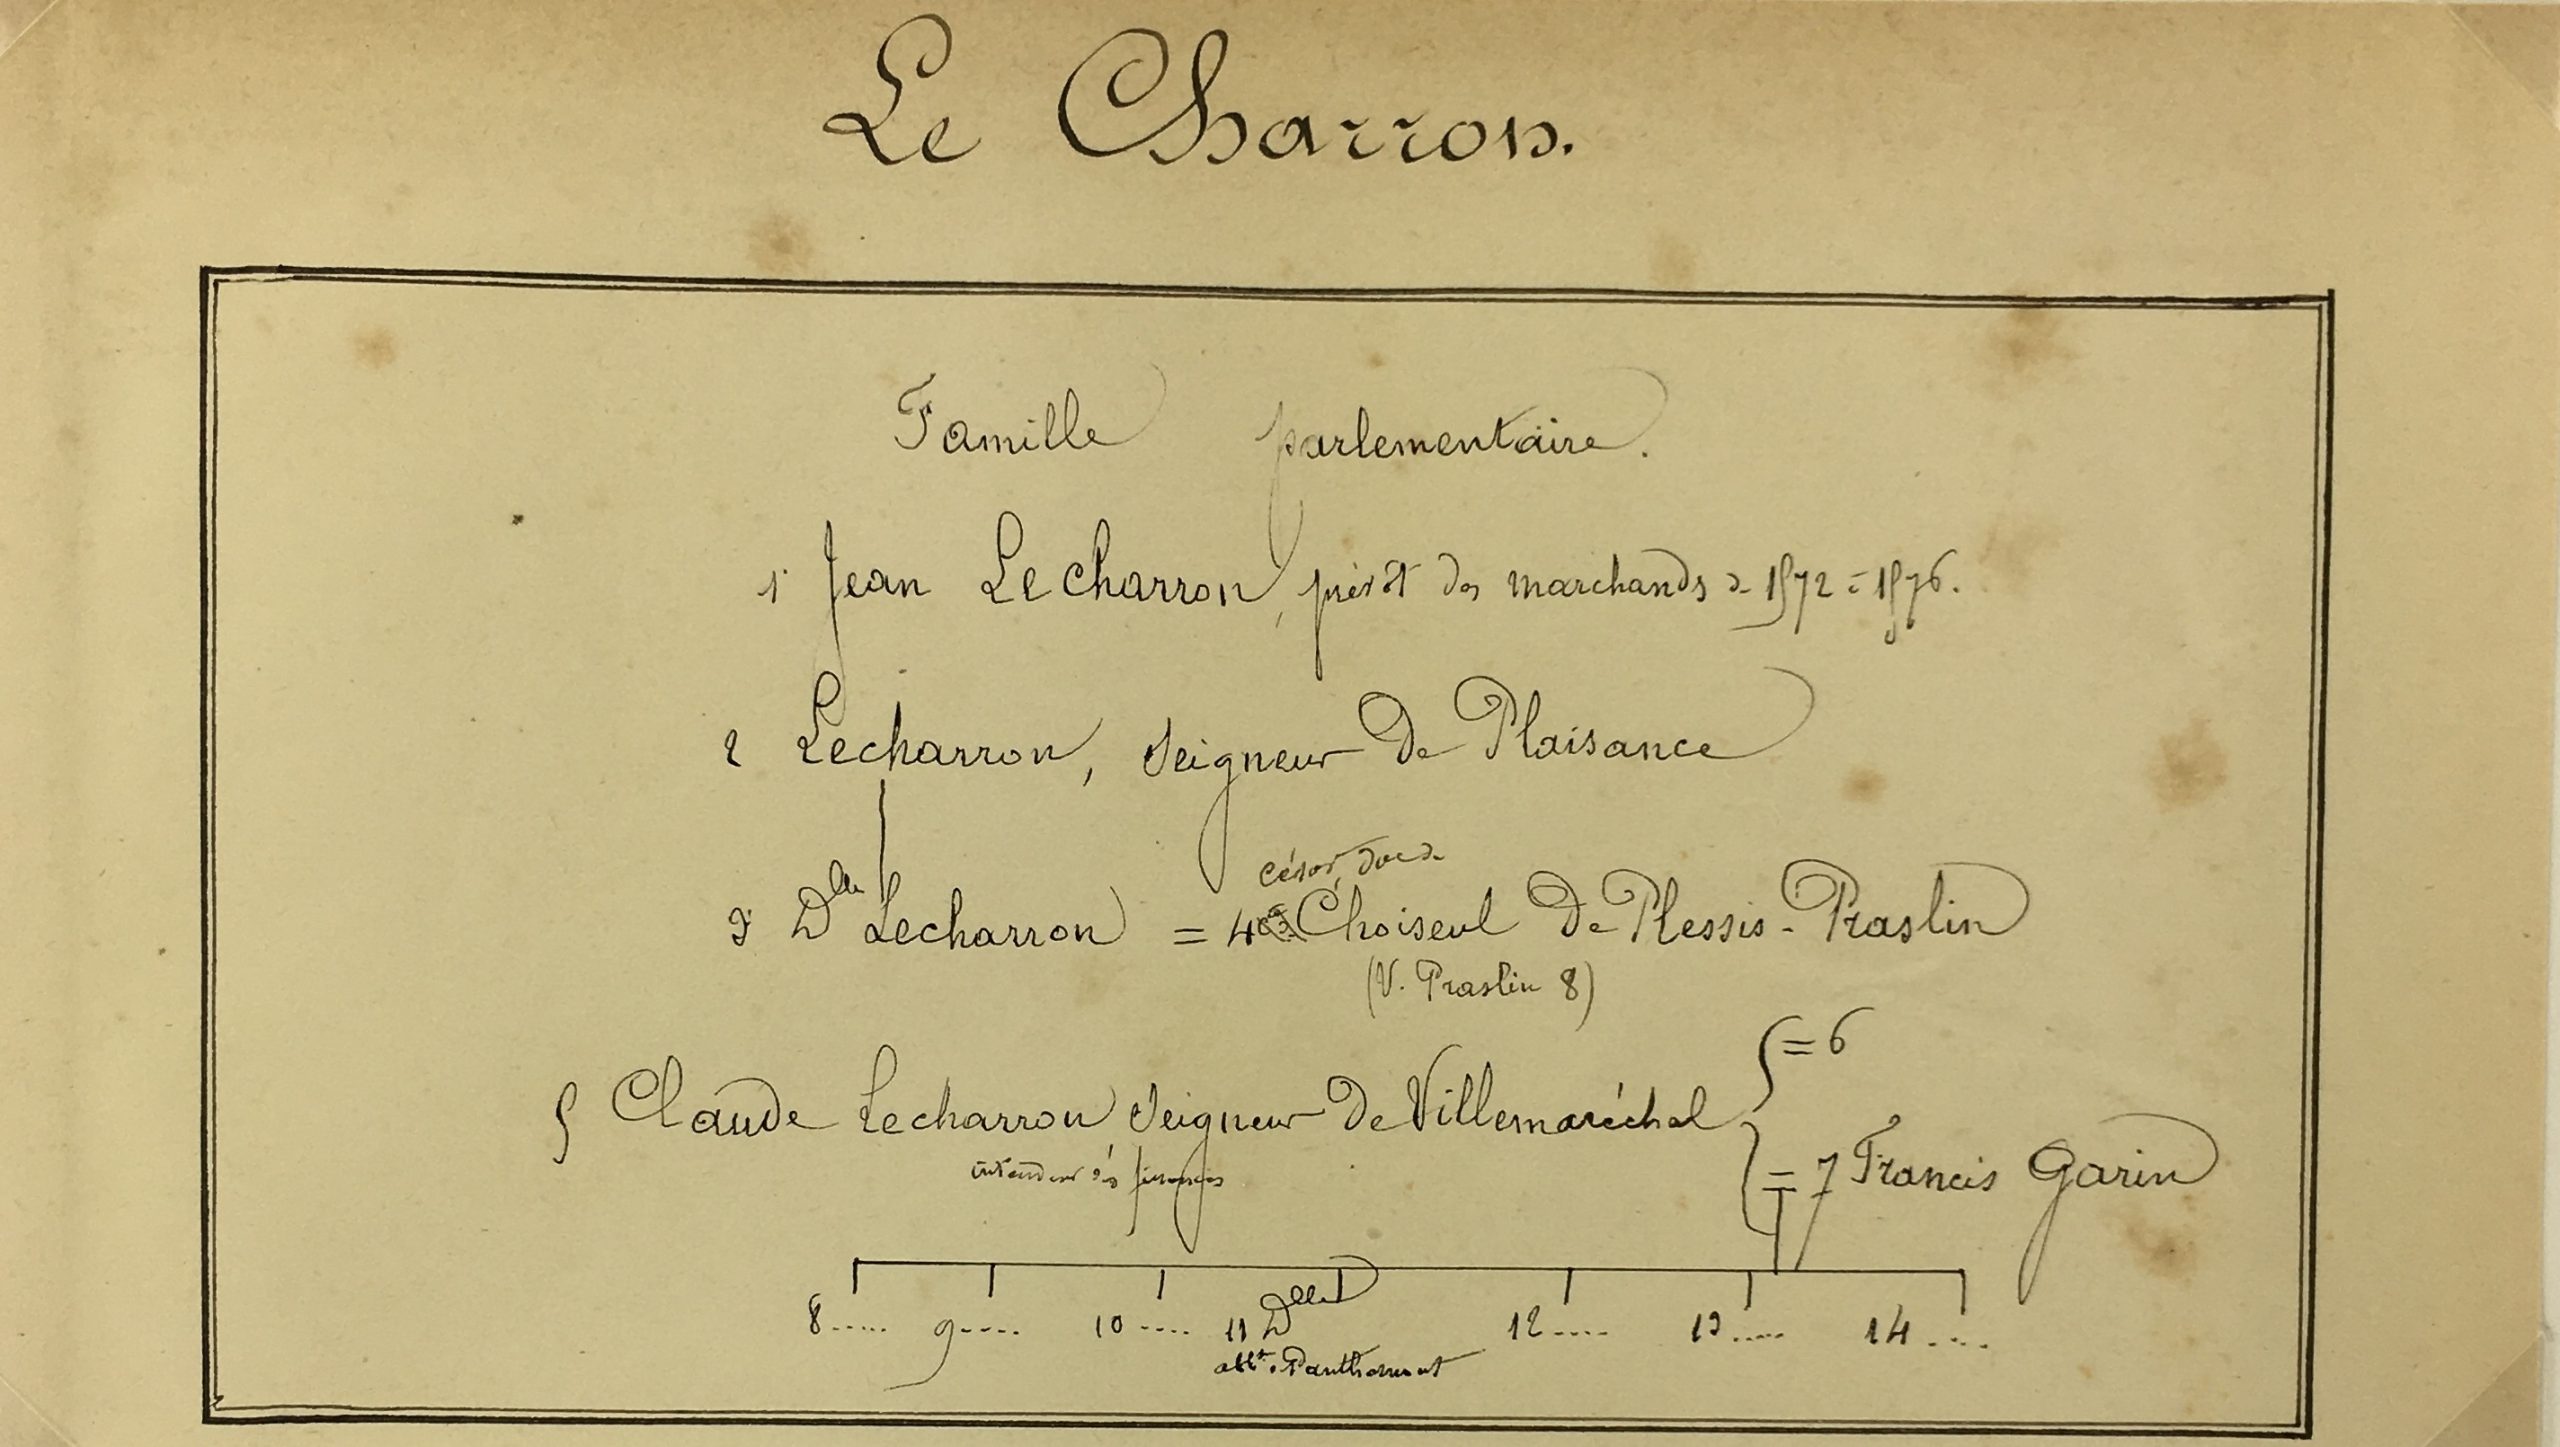 Le Charron.
Famille parlementaire.
1 Jean Lecharron, prévôt des marchands de 1572 = 1576.
2 Lecharron, Seigneur de Plaisance
César, duc de
3 Dlle Lecharron = 4 Choiseul de Plessis-Praslin
(V. Praslin 8)
= 6
5 Claude Lecharron Seigneur de Villemaréchal
intendant des finances
= 7 Francis Garin
8..... 9..... 10.... 11 Dlle 12..... 13..... 14....
abb. Panthemont